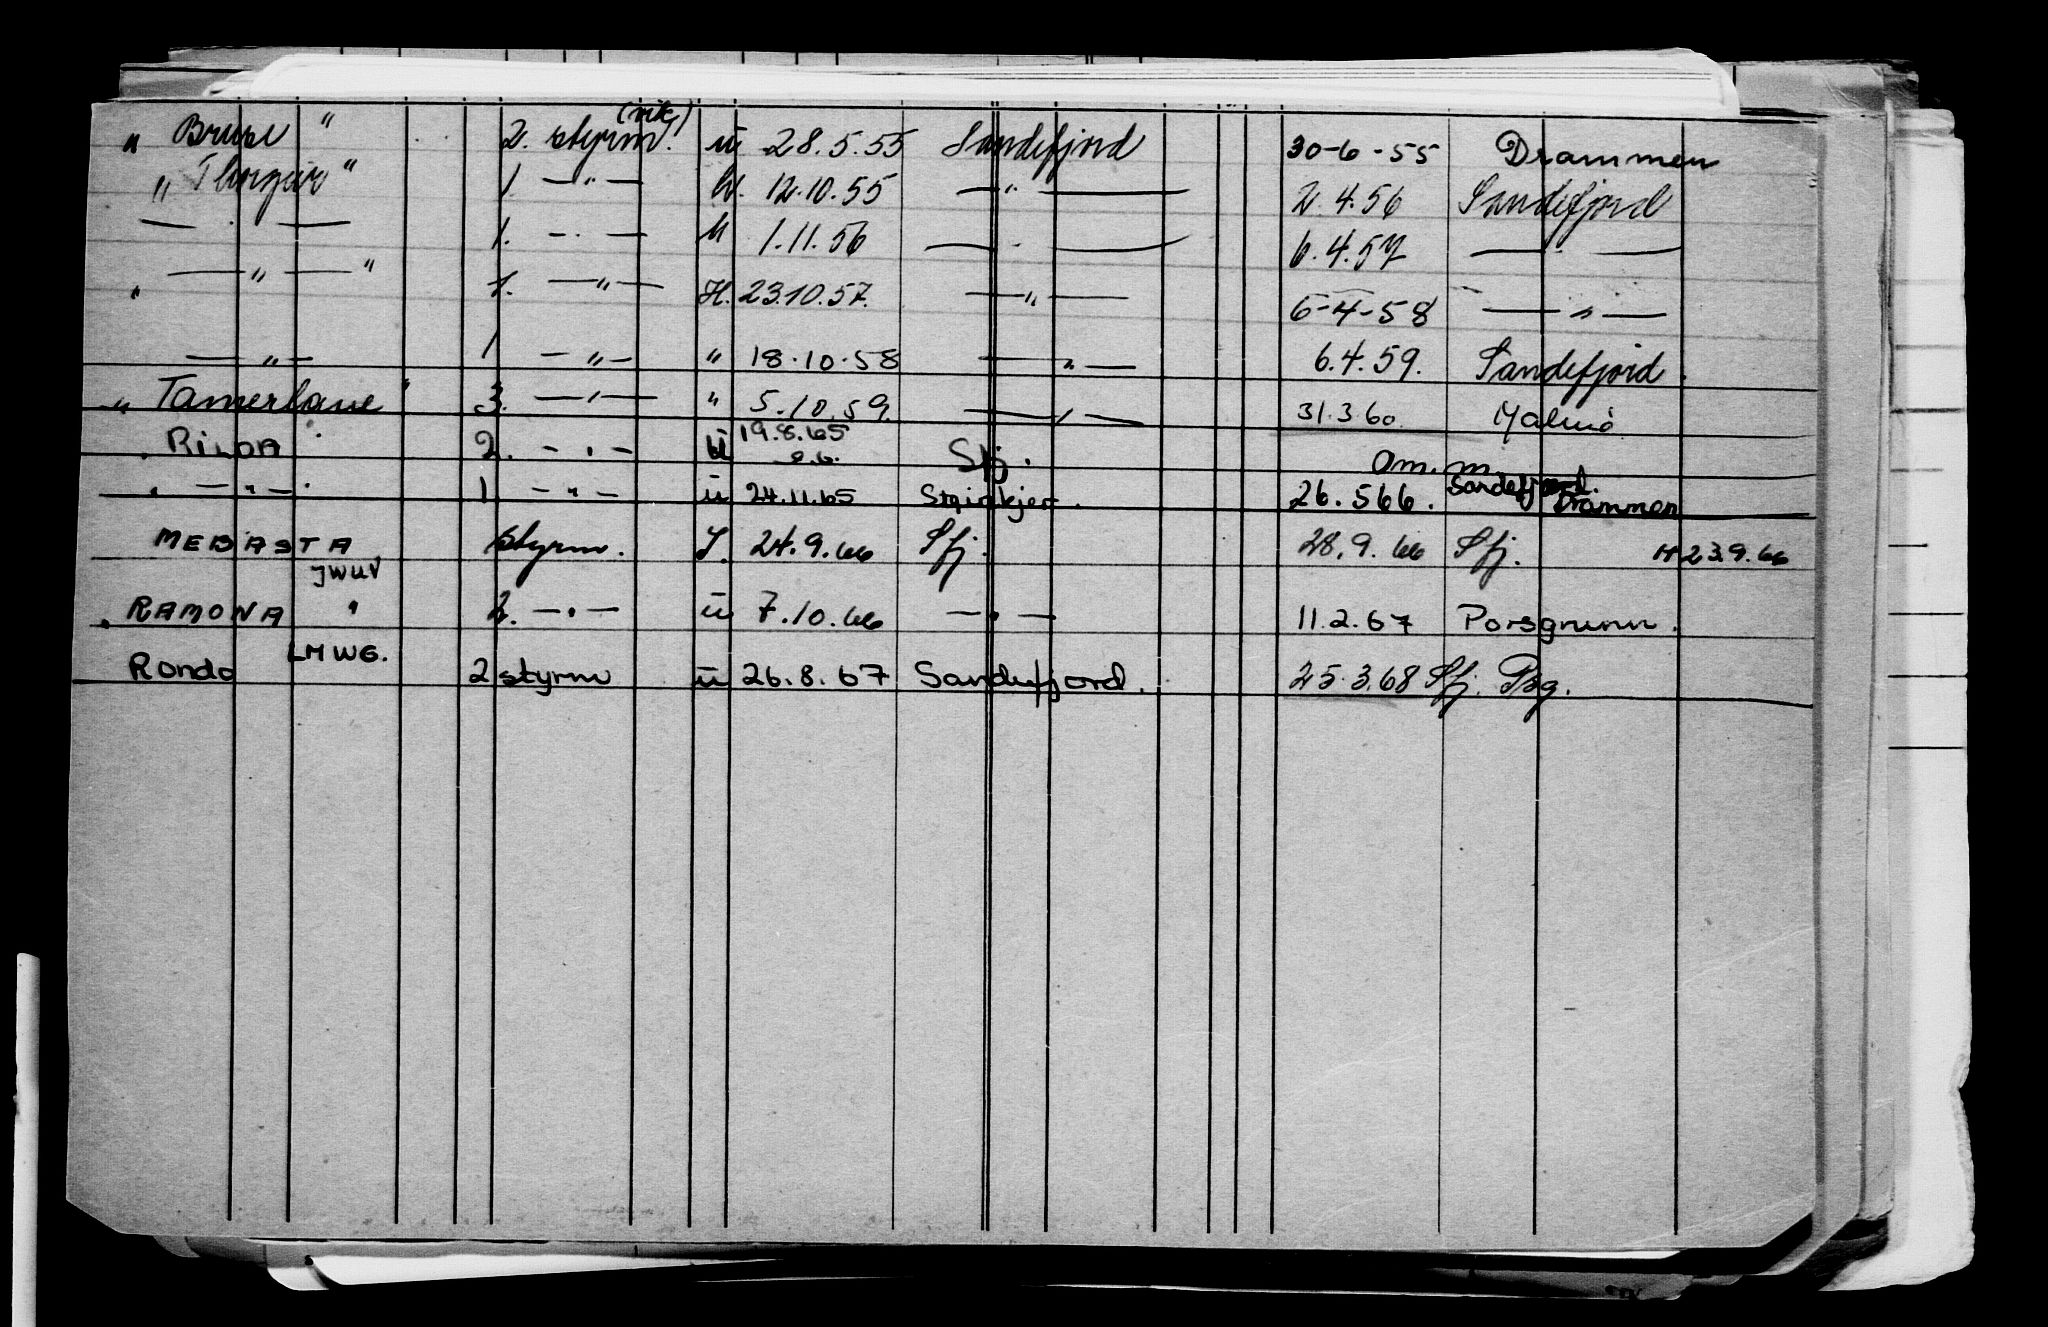 (vik)
" Bruse " 2. styrm. ü 28.5.55 Sandefjord 30-6-55 Drammen
" Thorgeir " 1. — " — H. 12.10.55 — " — 2.4.56 Sandefjord
— " — 1. — " — H 1.11.56 — " — 6.4.57 — " —
" — " — " 1. — " — H. 23.10.57. — " — 6-4-58 — " —
— " — 1 — " — " 18-10-58 — " — 6.4.59. Sandefjord.
" Tamerlane " 3. — " — " 5.10.59. — " — 31.3.60. Malmö
" RILDA " 2. — " — ü 19.8.65 Sfj. om. m. Sandefjord.
" — " — " 1. — " — ü 24.11.65 Steinkjer. 26.5.66. Drammen
MEBASTA styrm. S. 24.9.66 Sfj. 28.9.66 Sfj. H 23.9.66
JWUV
" RAMONA " 2. — " — ü 7.10.66 — " — 11.2.67 Porsgrunn.
LMWG.
Rondo 2 styrm ü 26.8.67 Sandefjord. 25.3.68 Sfj. Psg.